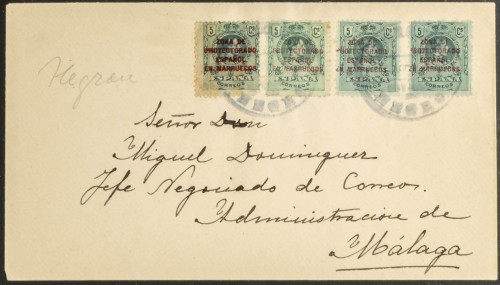 5 Cs 5 Cs 5 Cs 5 Cs
ZONA DE ZONA DE ZONA DE ZONA DE
PROTECTORADO PROTECTORADO PROTECTORADO PROTECTORADO
ESPAÑOL ESPAÑOL ESPAÑOL ESPAÑOL
EN MARRUECOS EN MARRUECOS EN MARRUECOS EN MARRUECOS
ESPAÑA ESPAÑA ESPAÑA ESPAÑA
CORREOS CORREOS CORREOS CORREOS
Señor Don
Miguel Dominguez
Jefe Negociado de Correos.
Administracion de
Málaga